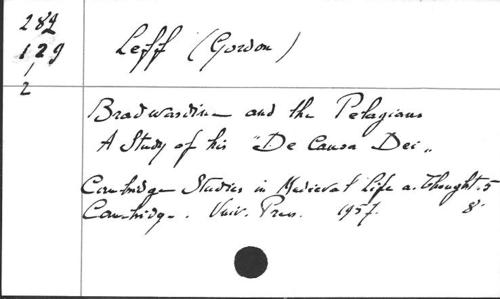 282
129
1
2
Leff (Gordon)
Bradwardine and the Pelagians
A Study of his "De Causa Dei"
Cambridge Studies in Medieval Life a. Thought. 5
Cambridge. Univ. Press. 1957. 8°